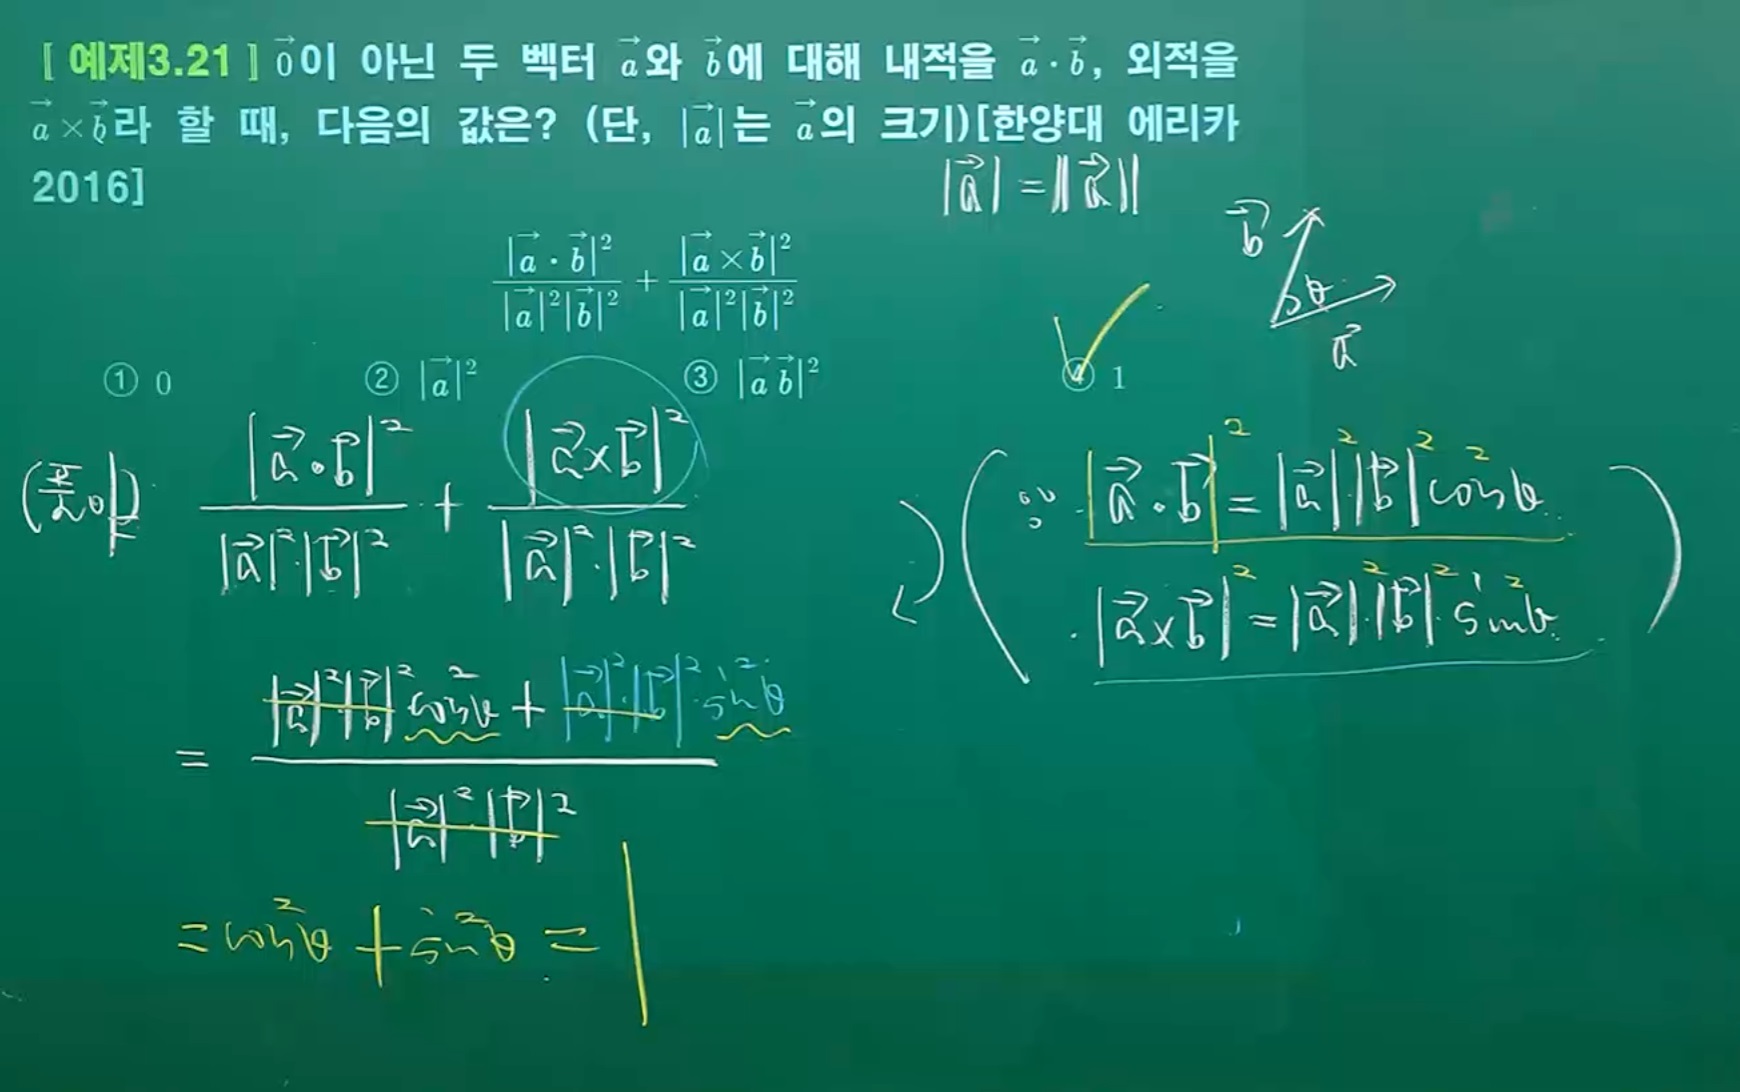 [ 예제3.21 ] $\vec{0}$이 아닌 두 벡터 $\vec{a}$와 $\vec{b}$에 대해 내적을 $\vec{a}\cdot\vec{b}$, 외적을
$\vec{a}\times\vec{b}$라 할 때, 다음의 값은? (단, $|\vec{a}|$는 $\vec{a}$의 크기)[한양대 에리카
2016]
$|\vec{a}| = \|\vec{a}\|$
$\vec{b}$
θ
$\vec{a}$
$\frac{|\vec{a}\cdot\vec{b}|^2}{|\vec{a}|^2|\vec{b}|^2} + \frac{|\vec{a}\times\vec{b}|^2}{|\vec{a}|^2|\vec{b}|^2}$
① 0 ② $|\vec{a}|^2$ ③ $|\vec{a}\,\vec{b}|^2$ ④ 1
(풀이) $\frac{|\vec{a}\cdot\vec{b}|^2}{|\vec{a}|^2\cdot|\vec{b}|^2} + \frac{|\vec{a}\times\vec{b}|^2}{|\vec{a}|^2\cdot|\vec{b}|^2}$
$= \frac{|\vec{a}|^2\cdot|\vec{b}|^2\cos^2θ + |\vec{a}|^2\cdot|\vec{b}|^2\cdot\sin^2θ}{|\vec{a}|^2\cdot|\vec{b}|^2}$
$= \cos^2θ + \sin^2θ = 1$
(∵ $|\vec{a}\cdot\vec{b}|^2 = |\vec{a}|^2\cdot|\vec{b}|^2\cos^2θ$
$\cdot |\vec{a}\times\vec{b}|^2 = |\vec{a}|^2\cdot|\vec{b}|^2\cdot\sin^2θ$)